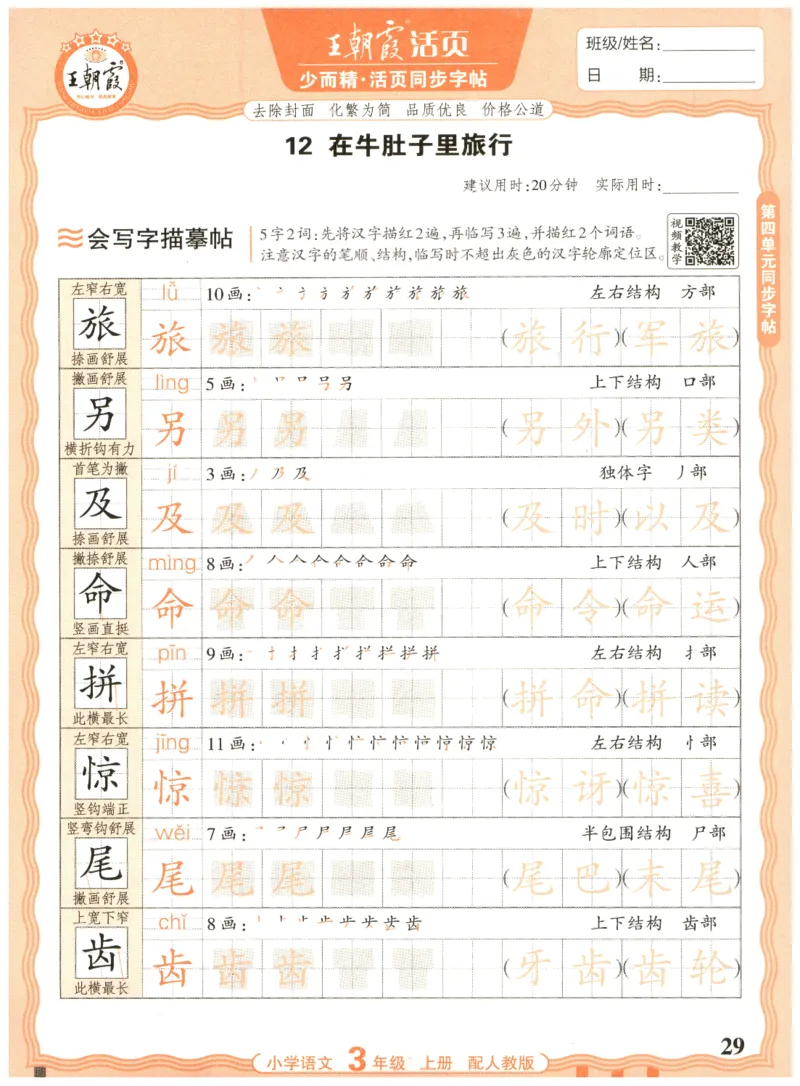 王朝霞
王朝霞®活页
少而精·活页同步字帖
班级/姓名:
日 期:
去除封面 化繁为简 品质优良 价格公道
12 在牛肚子里旅行
建议用时:20分钟 实际用时:
会写字描摹帖
5字2词:先将汉字描红2遍,再临写3遍,并描红2个词语。
注意汉字的笔顺、结构,临写时不超出灰色的汉字轮廓定位区。
视频教学
第四单元同步字帖
左窄右宽 lǚ 10画: 左右结构 方部
旅 旅 旅 旅 (旅行)(军旅)
捺画舒展
撇画舒展 lìng 5画: 上下结构 口部
另 另 另 另 (另外)(另类)
横折钩有力
首笔为撇 jí 3画: 独体字 丿部
及 及 及 及 (及时)(以及)
捺画舒展
撇捺舒展 mìng 8画: 上下结构 人部
命 命 命 命 (命令)(命运)
竖画直挺
左窄右宽 pīn 9画: 左右结构 扌部
拼 拼 拼 拼 (拼命)(拼读)
此横最长
左窄右宽 jīng 11画: 左右结构 忄部
惊 惊 惊 惊 (惊讶)(惊喜)
竖钩端正
竖弯钩舒展 wěi 7画: 半包围结构 尸部
尾 尾 尾 尾 (尾巴)(末尾)
撇画舒展
上宽下窄 chǐ 8画: 上下结构 齿部
齿 齿 齿 齿 (牙齿)(齿轮)
此横最长
29
小学语文 3年级 上册 配人教版